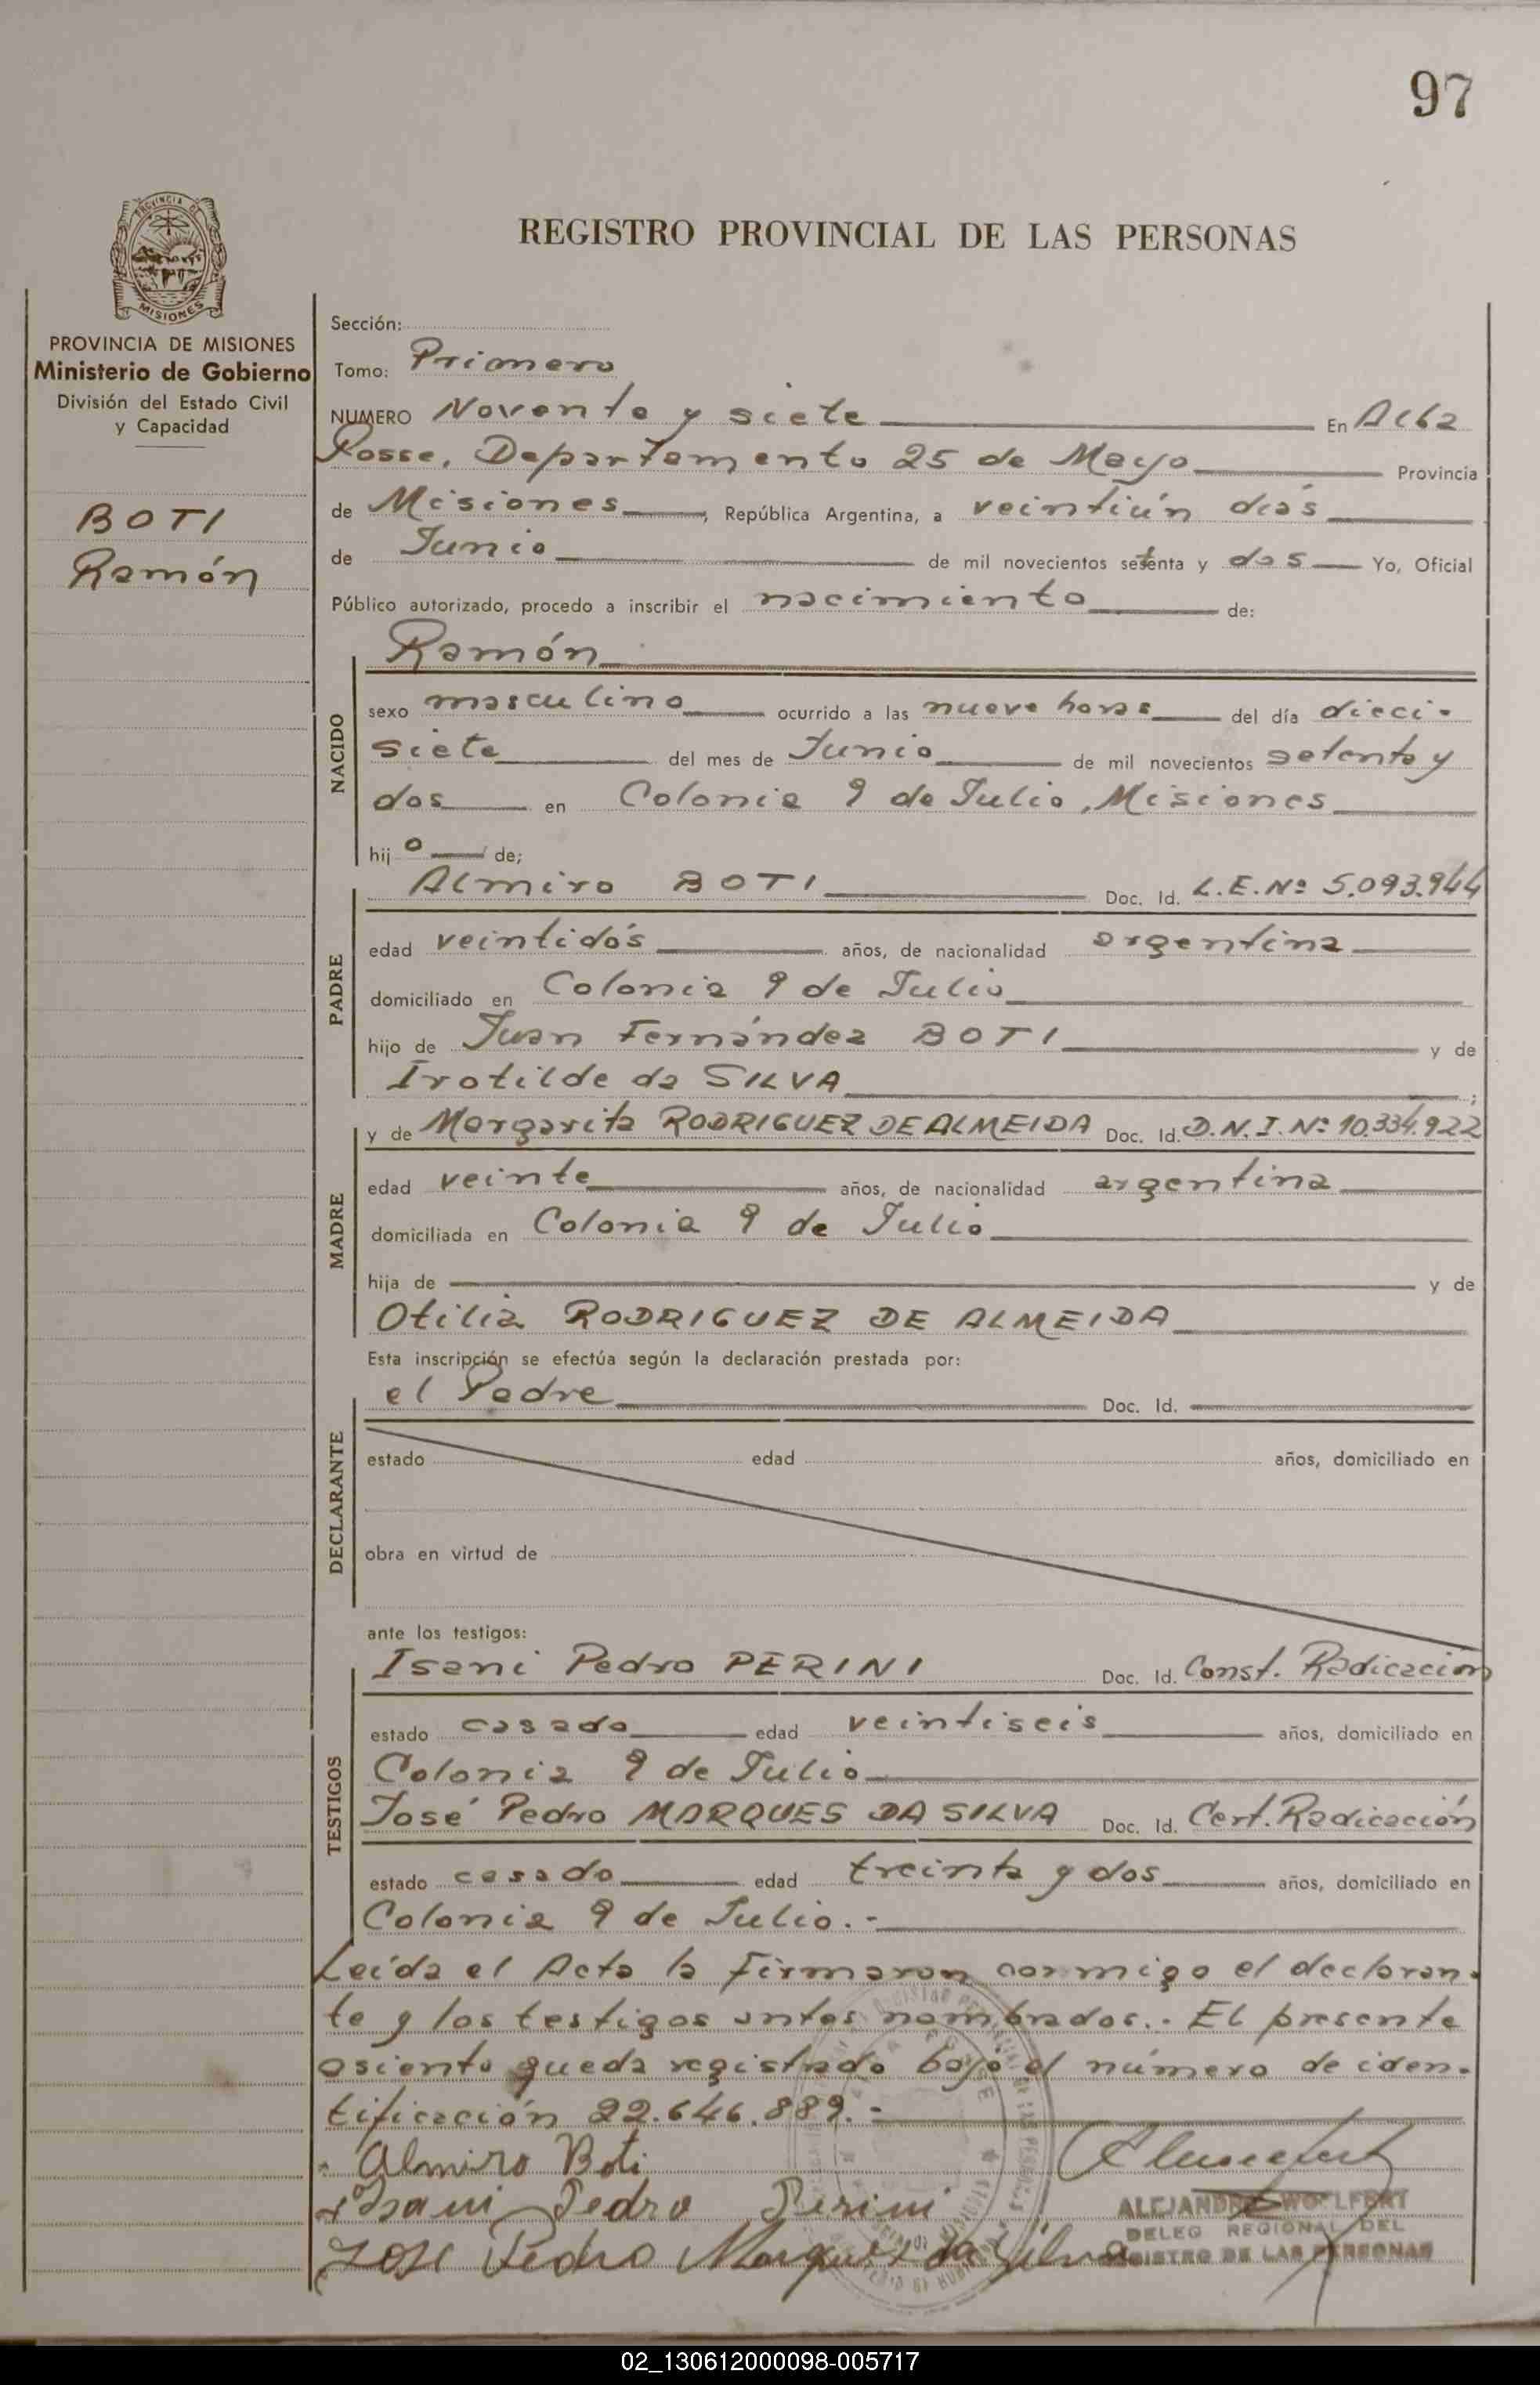 97
PROVINCIA DE
MISIONES
REGISTRO PROVINCIAL DE LAS PERSONAS
PROVINCIA DE MISIONES
Ministerio de Gobierno
División del Estado Civil
y Capacidad
BOTI
Ramón
Sección:
Tomo: Primero
NUMERO Noventa y siete En Alba
Posse, Departamento 25 de Mayo Provincia
de Misiones, República Argentina, a veintiún días
de Junio de mil novecientos setenta y dos Yo, Oficial
Público autorizado, procedo a inscribir el nacimiento de:
Ramón
NACIDO
sexo masculino ocurrido a las nueve horas del día dieci-
siete del mes de Junio de mil novecientos setenta y
dos en Colonia 9 de Julio, Misiones
hij o de;
PADRE
Almiro BOTI Doc. Id. L.E. Nº 5.093.944
edad veintidós años, de nacionalidad argentina
domiciliado en Colonia 9 de Julio
hijo de Juan Fernández BOTI y de
Irotilde da SILVA ;
MADRE
y de Margarita RODRIGUEZ DE ALMEIDA Doc. Id. D.N.I. Nº 10.334.922
edad veinte años, de nacionalidad argentina
domiciliada en Colonia 9 de Julio
hija de y de
Otilia RODRIGUEZ DE ALMEIDA
Esta inscripción se efectúa según la declaración prestada por:
DECLARANTE
el Padre Doc. Id.
estado edad años, domiciliado en
obra en virtud de
ante los testigos:
TESTIGOS
Isani Pedro PERINI Doc. Id. Const. Radicación
estado casado edad veintiseis años, domiciliado en
Colonia 9 de Julio
José Pedro MARQUES DA SILVA Doc. Id. Cert. Radicación
estado casado edad treinta y dos años, domiciliado en
Colonia 9 de Julio.-
Leída el Acta la firmaron conmigo el declaran-
te y los testigos antes nombrados.- El presente
asiento queda registrado bajo el número de iden-
tificación 22.646.889.-
Almiro Boti
Isani Pedro Perini
José Pedro Marques da Silva
ALEJANDRO WOLFERT
DELEG REGIONAL DEL
REGISTRO DE LAS PERSONAS
02_130612000098-005717